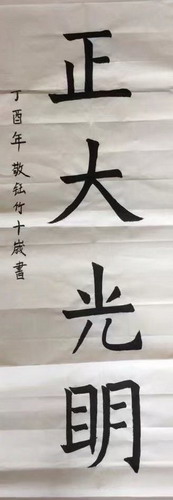 正大光明
丁酉年 敬钰竹十歲書